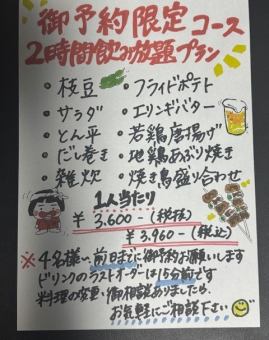 御予約限定コース
2時間飲み放題プラン
・枝豆 ・フライドポテト
・サラダ ・エリンギバター
・とん平 ・若鶏唐揚げ
・だし巻き ・地鶏あぶり焼き
・雑炊 ・焼き鳥盛り合わせ
1人当たり
¥3.600-(税抜)
¥3.960-(税込)
※4名様い、前日までに御予約お願いします
ドリンクのラストオーダーは15分前です
料理の変更・御相談ありましたら、
お気軽にご相談下さい